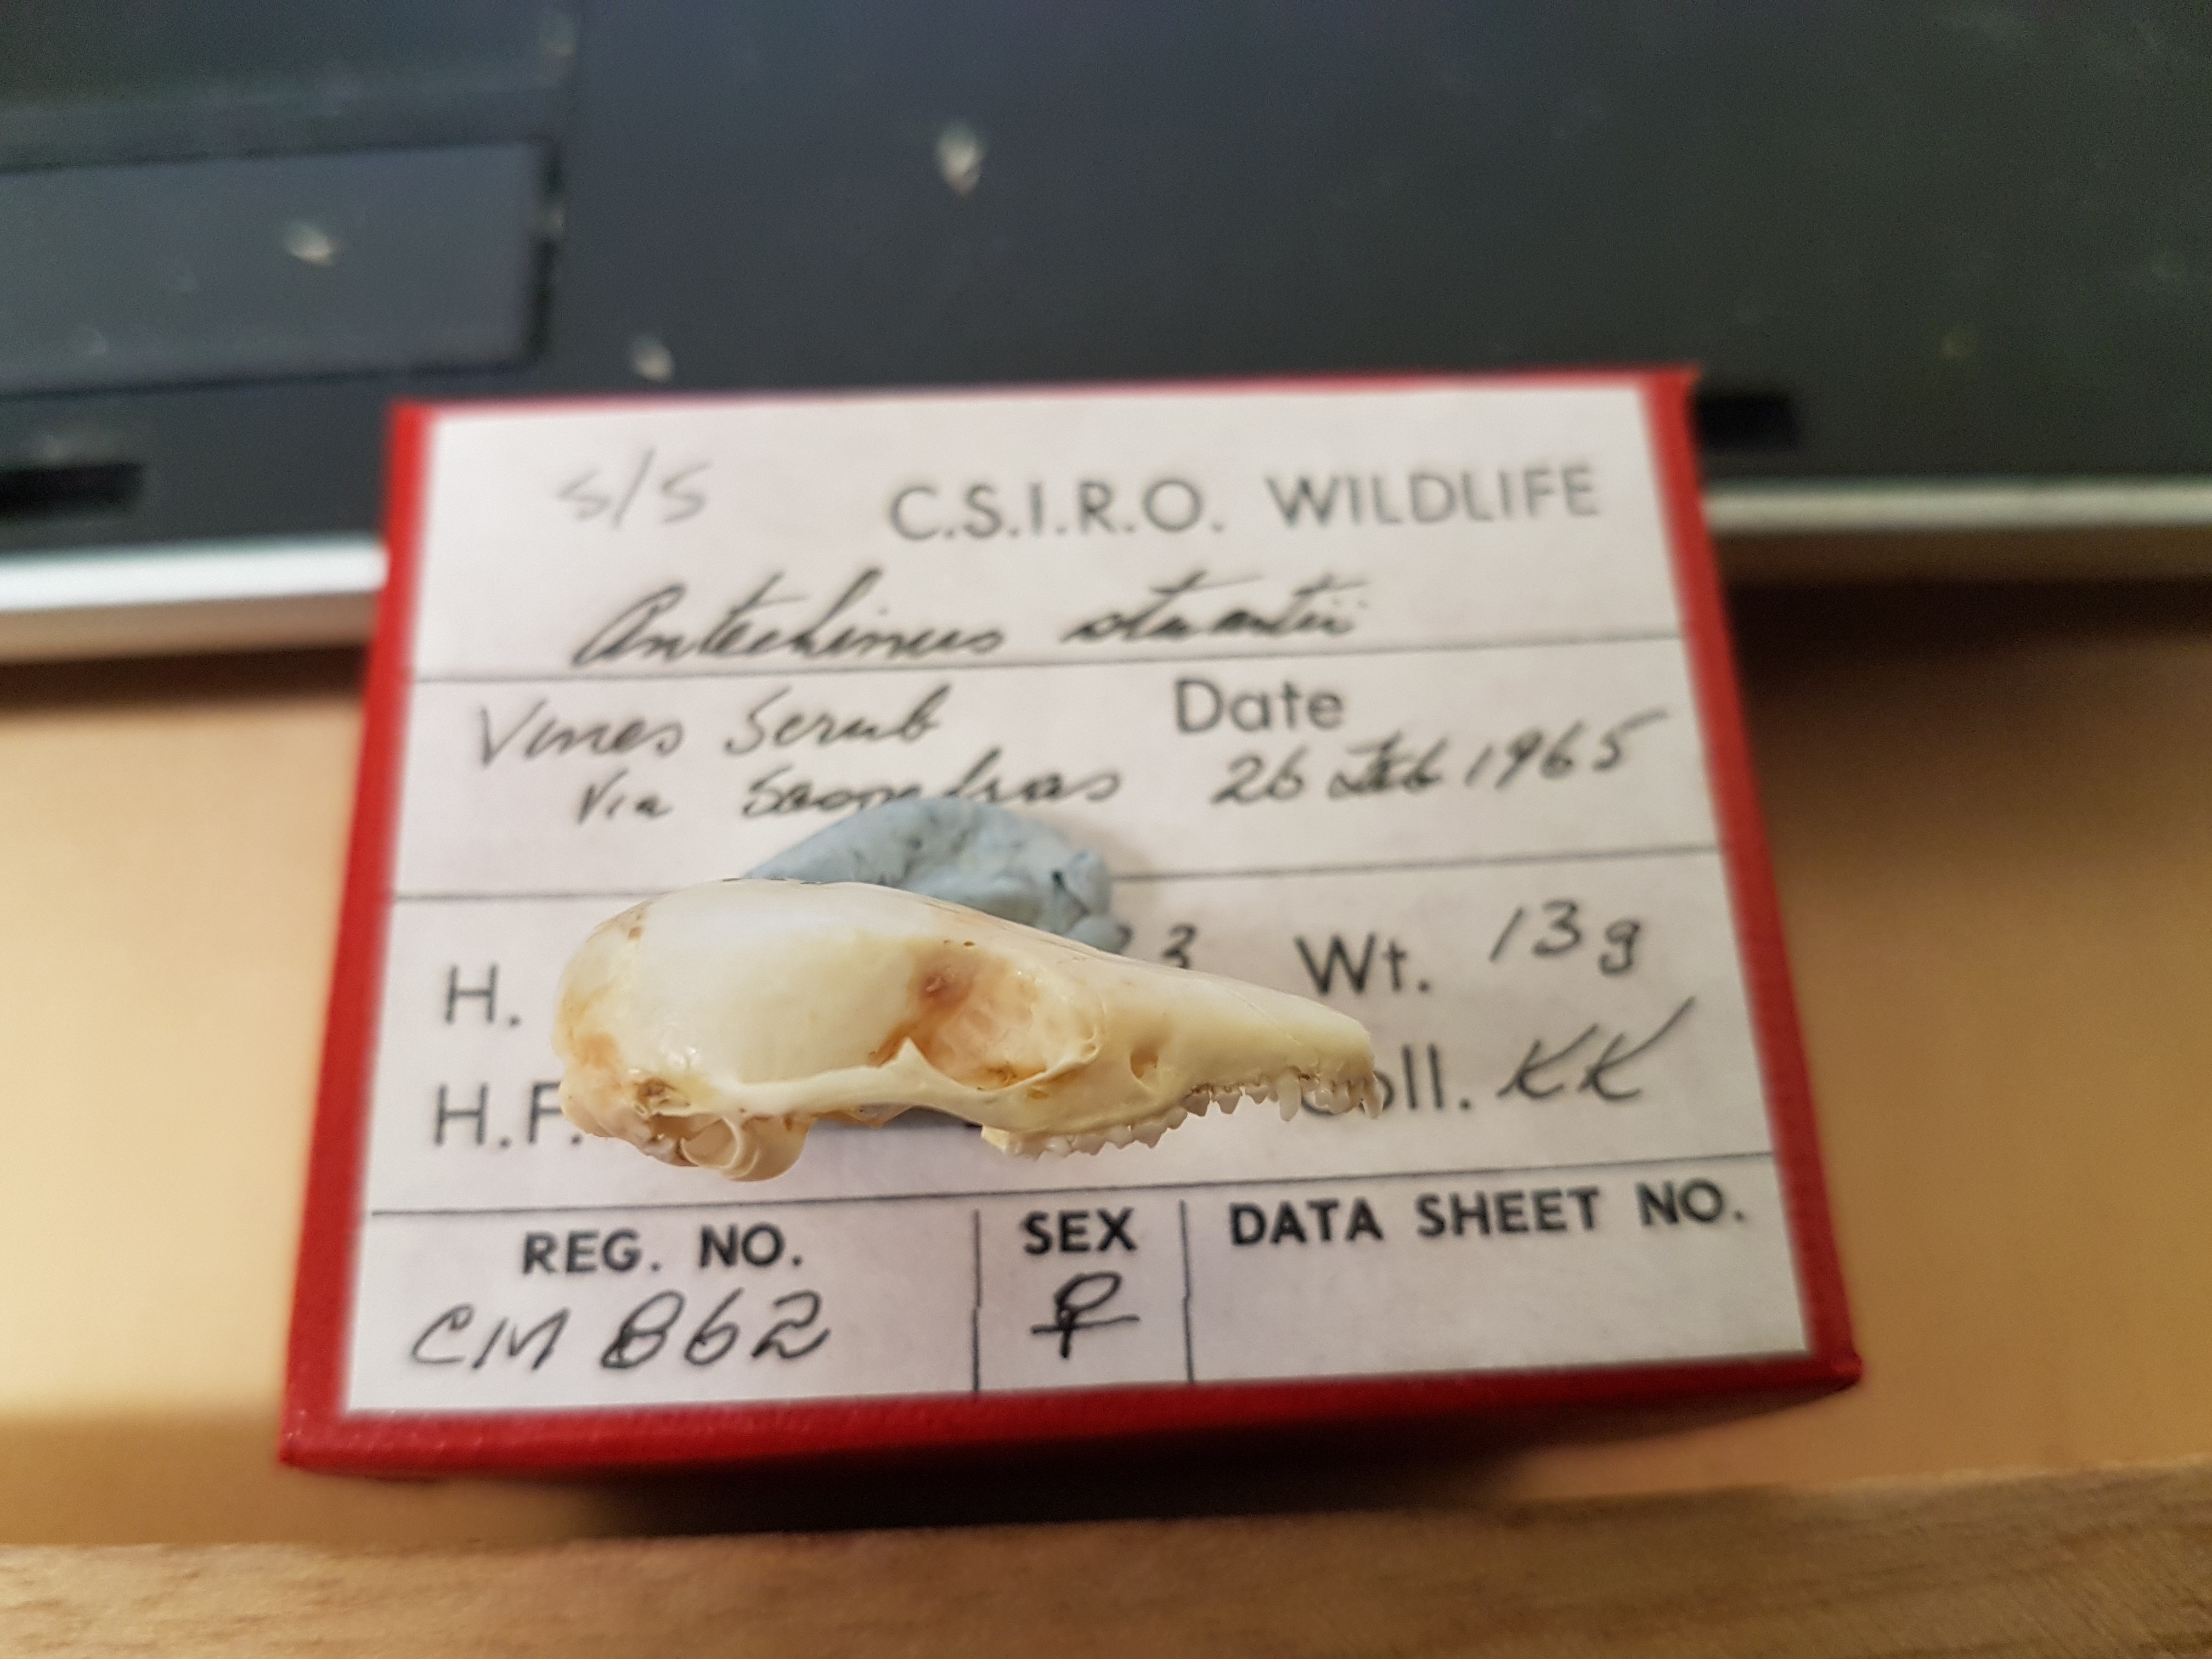 S/S C.S.I.R.O. WILDLIFE
Antechinus stuartii
Vines Scrub Date
Via 26 Feb 1965
H. 3 Wt. 13g
H.F. Coll. KK
REG. NO. SEX DATA SHEET NO.
CM 862 ♀